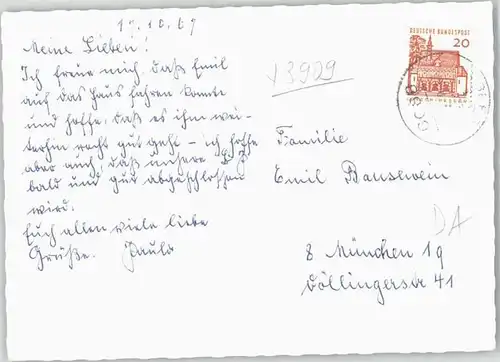 17.10.67
Meine Lieben!
Ich freue mich, daß Emil
auch das Haus fahren konnte
und hoffe, daß es ihm wei-
terhin recht gut geht – ich hoffe
aber auch, daß unsere
bald und gut abgeschlossen
wird.
Euch allen viele liebe
Grüße. Paula
y 3929
DEUTSCHE BUNDESPOST
20
Familie
Emil Bausewein
DA
8 München 19
Döllingerstr 41